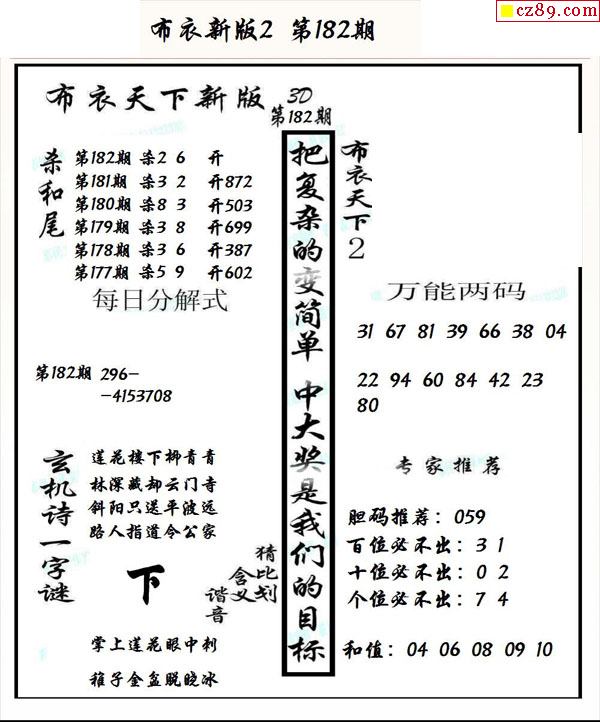 cz89.com
布衣新版2 第182期
布衣天下新版
3D
第182期
杀和尾
第182期 杀2 6 开
第181期 杀3 2 开872
第180期 杀8 3 开503
第179期 杀3 8 开699
第178期 杀3 6 开387
第177期 杀5 9 开602
每日分解式
第182期 296-
-4153708
玄机诗一字谜
莲花楼下柳青青
林深藏却云门寺
斜阳只送平波远
路人指道令公家
下
猜比划
含义
谐音
掌上莲花眼中刺
稚子金盆脱晓冰
把复杂的变简单 中大奖是我们的目标
布衣天下2
万能两码
31 67 81 39 66 38 04
22 94 60 84 42 23
80
专家推荐
胆码推荐：059
百位必不出：3 1
十位必不出：0 2
个位必不出：7 4
和值：04 06 08 09 10